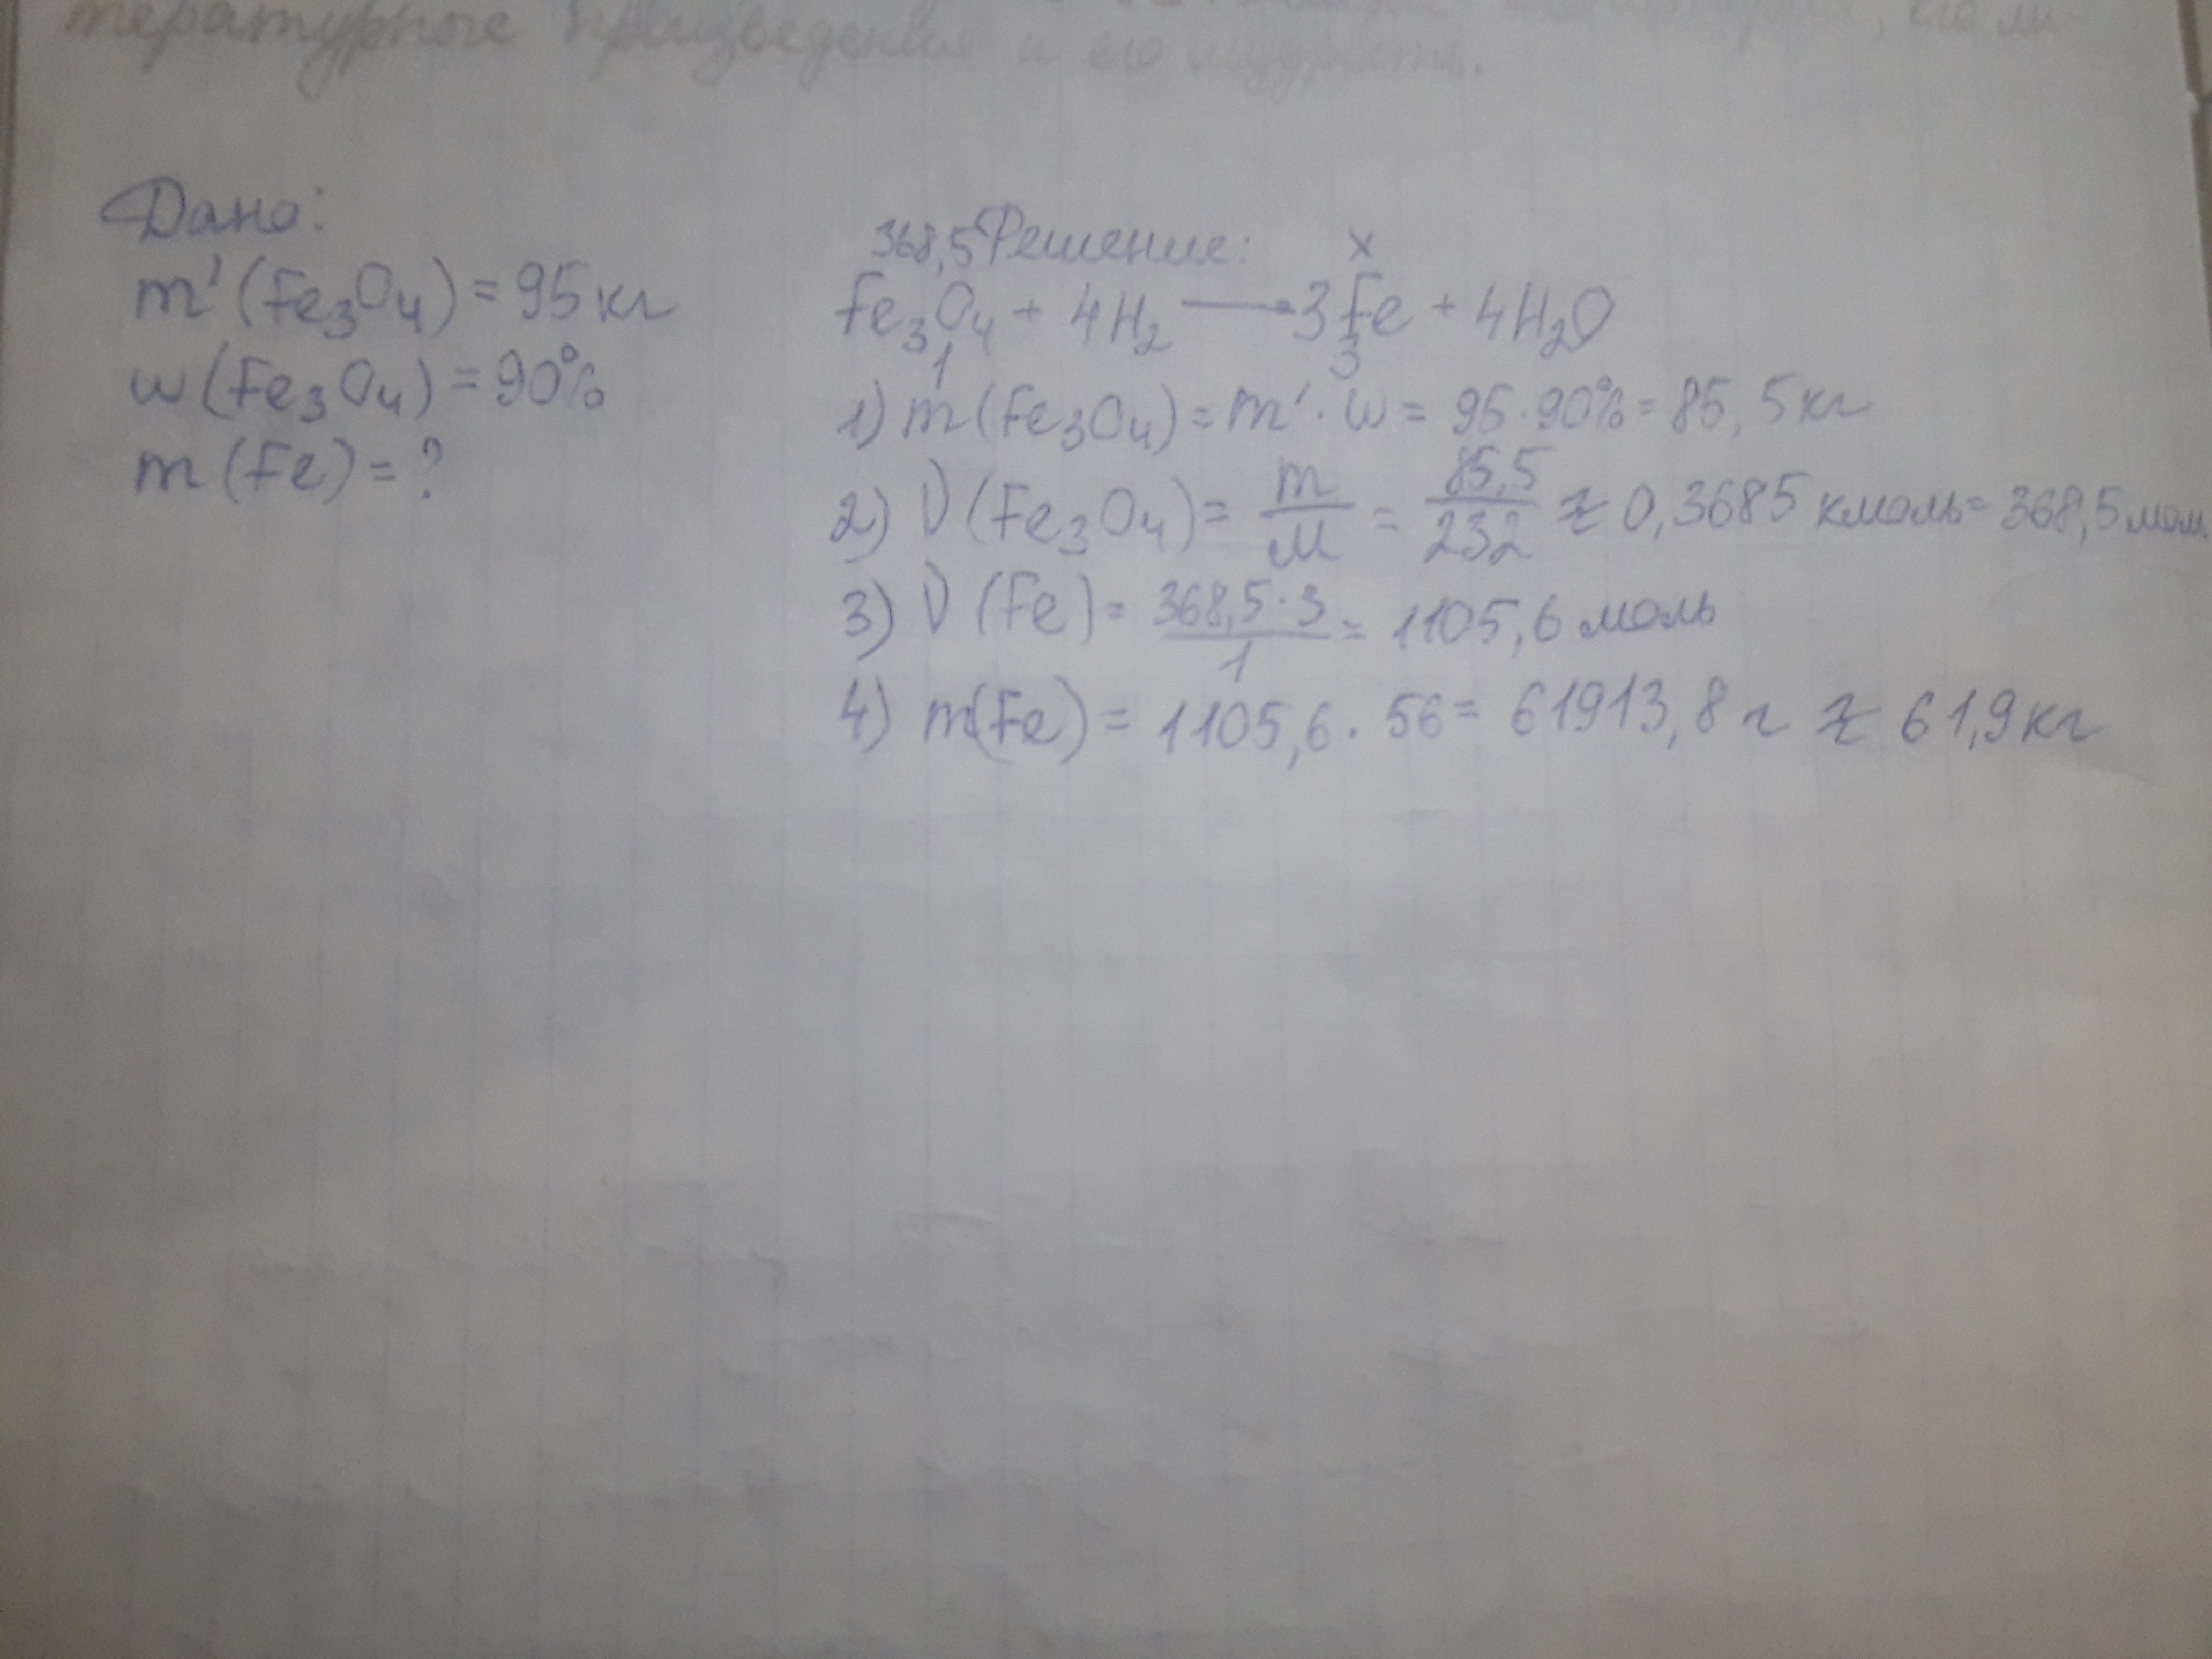 тературное произведение и его мудрость.
Дано:
m'(Fe₃O₄) = 95 кг
w(Fe₃O₄) = 90%
m(Fe) = ?
368,5 Решение: x
Fe₃O₄ + 4H₂ → 3Fe + 4H₂O
1 3
1) m(Fe₃O₄) = m' · w = 95 · 90% = 85,5 кг
2) ν(Fe₃O₄) = m/M = 85,5/232 ≈ 0,3685 кмоль = 368,5 мол
3) ν(Fe) = 368,5 · 3/1 = 1105,6 моль
4) m(Fe) = 1105,6 · 56 = 61913,8 г ≈ 61,9 кг